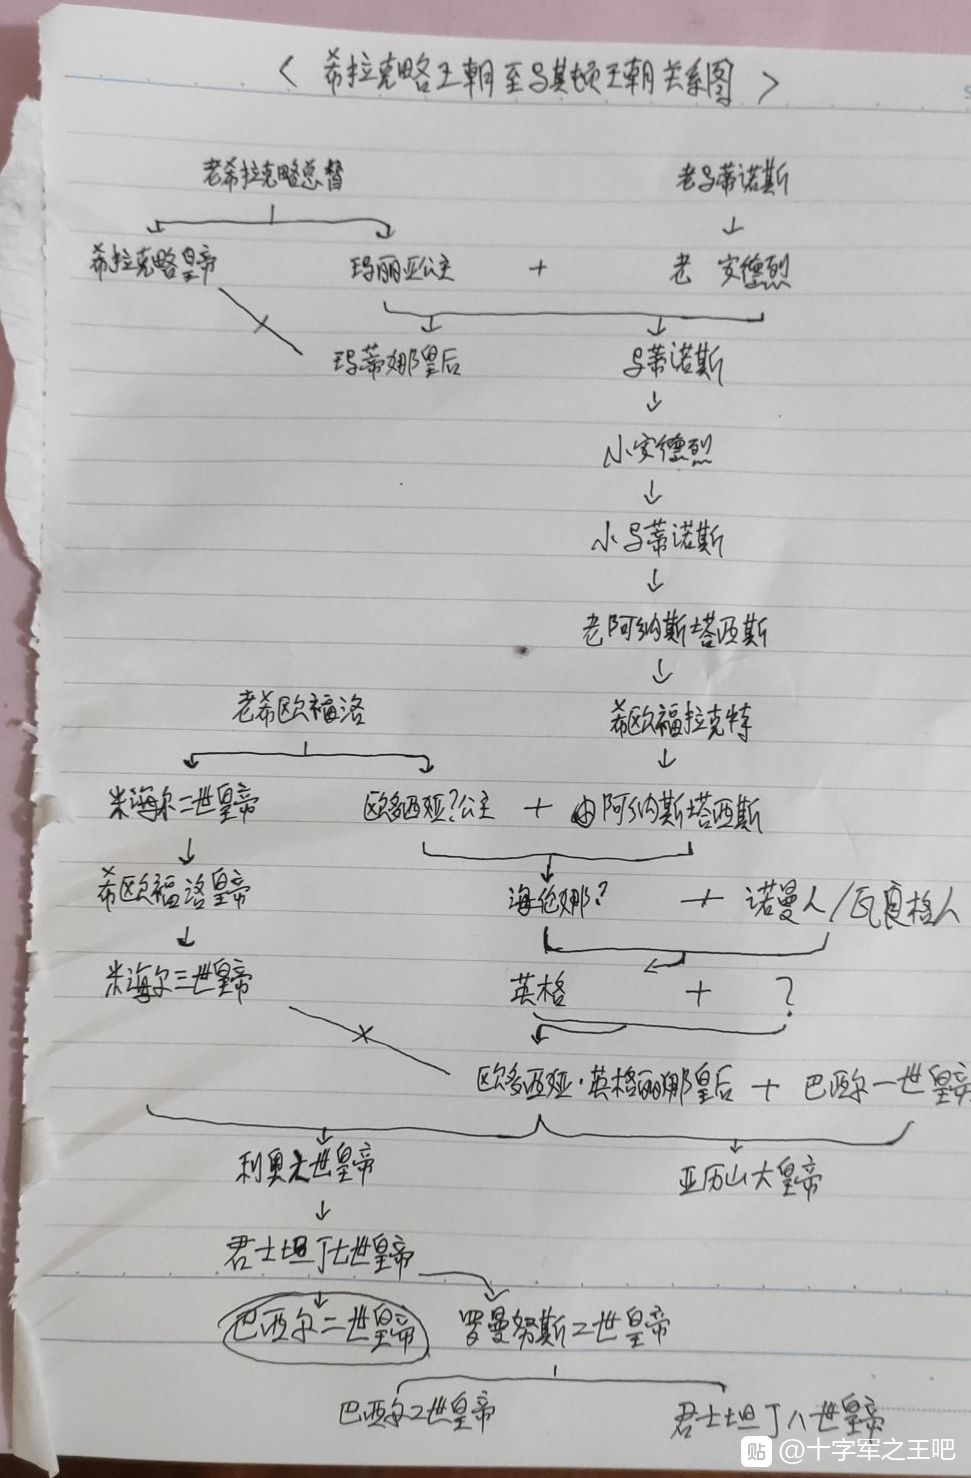 < 希拉克略王朝至马其顿王朝关系图 >
老希拉克略总督 老马蒂诺斯
希拉克略皇帝 玛丽亚公主 + 老 安德烈
玛蒂娜皇后 马蒂诺斯
小安德烈
小马蒂诺斯
老阿纳斯塔西斯
老希欧福洛 希欧福拉克特
米海尔二世皇帝 欧多西娅?公主 + 由阿纳斯塔西斯
希欧福洛皇帝 海伦娜? + 诺曼人/瓦良格人
米海尔三世皇帝 英格 + ?
欧多西娅·英格丽娜皇后 + 巴西尔一世皇帝
利奥六世皇帝 亚历山大皇帝
君士坦丁七世皇帝
巴西尔二世皇帝 罗曼努斯二世皇帝
巴西尔二世皇帝 君士坦丁八世皇帝
贴 @十字军之王吧